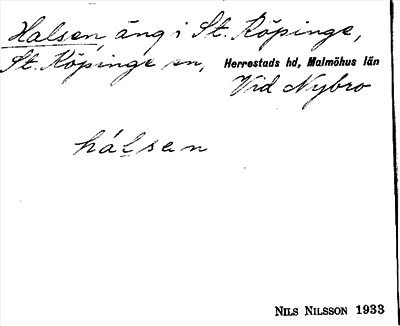 Halsen, äng i St. Köpinge,
St. Köpinge sn, Herrestads hd, Malmöhus län
Vid Nybro
hálsen
NILS NILSSON 1933